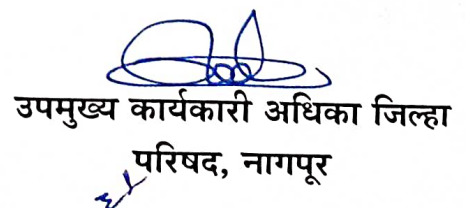 उपमुख्य कार्यकारी अधिका जिल्हा
परिषद, नागपूर